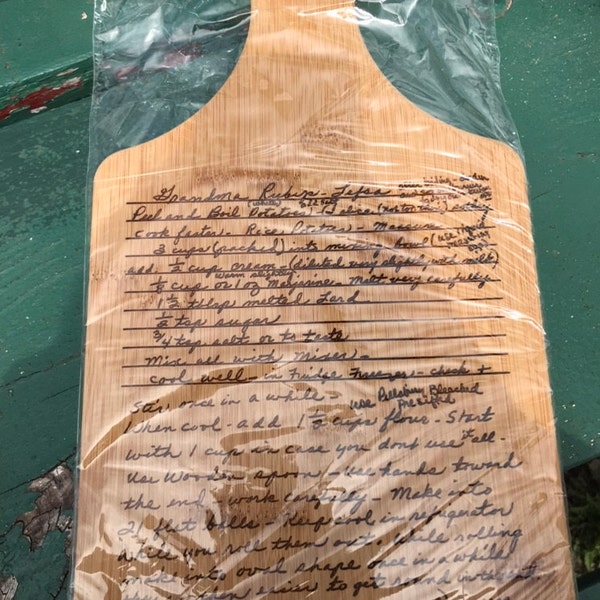 Grandma Rubin - Lefse
Peel and Boil Potatoes / Slice
cook faster - Rice Potatoes - Measure
3 cups (packed) into mixing bowl (use
add 1/2 cup cream - (diluted very slightly with milk)
warm slightly
1/8 cup or 1 oz Margarine - Melt very carefully
1 1/2 tblsp melted Lard
1/2 tsp sugar
3/4 tsp salt or to taste
Mix all with Mixer -
cool well - in Fridge Freezer - check +
stir once in a while - Use Pillsbury Bleached
Presifted
When cool - add 1 1/2 cups flour - Start
with 1 cup in case you dont use it all -
Use Wooden spoon - use hands toward
the end - work carefully - Make into
21 flat balls - Keep cool in refrigerator
while you roll them out. While rolling
make into oval shape once in a while
easier to get round